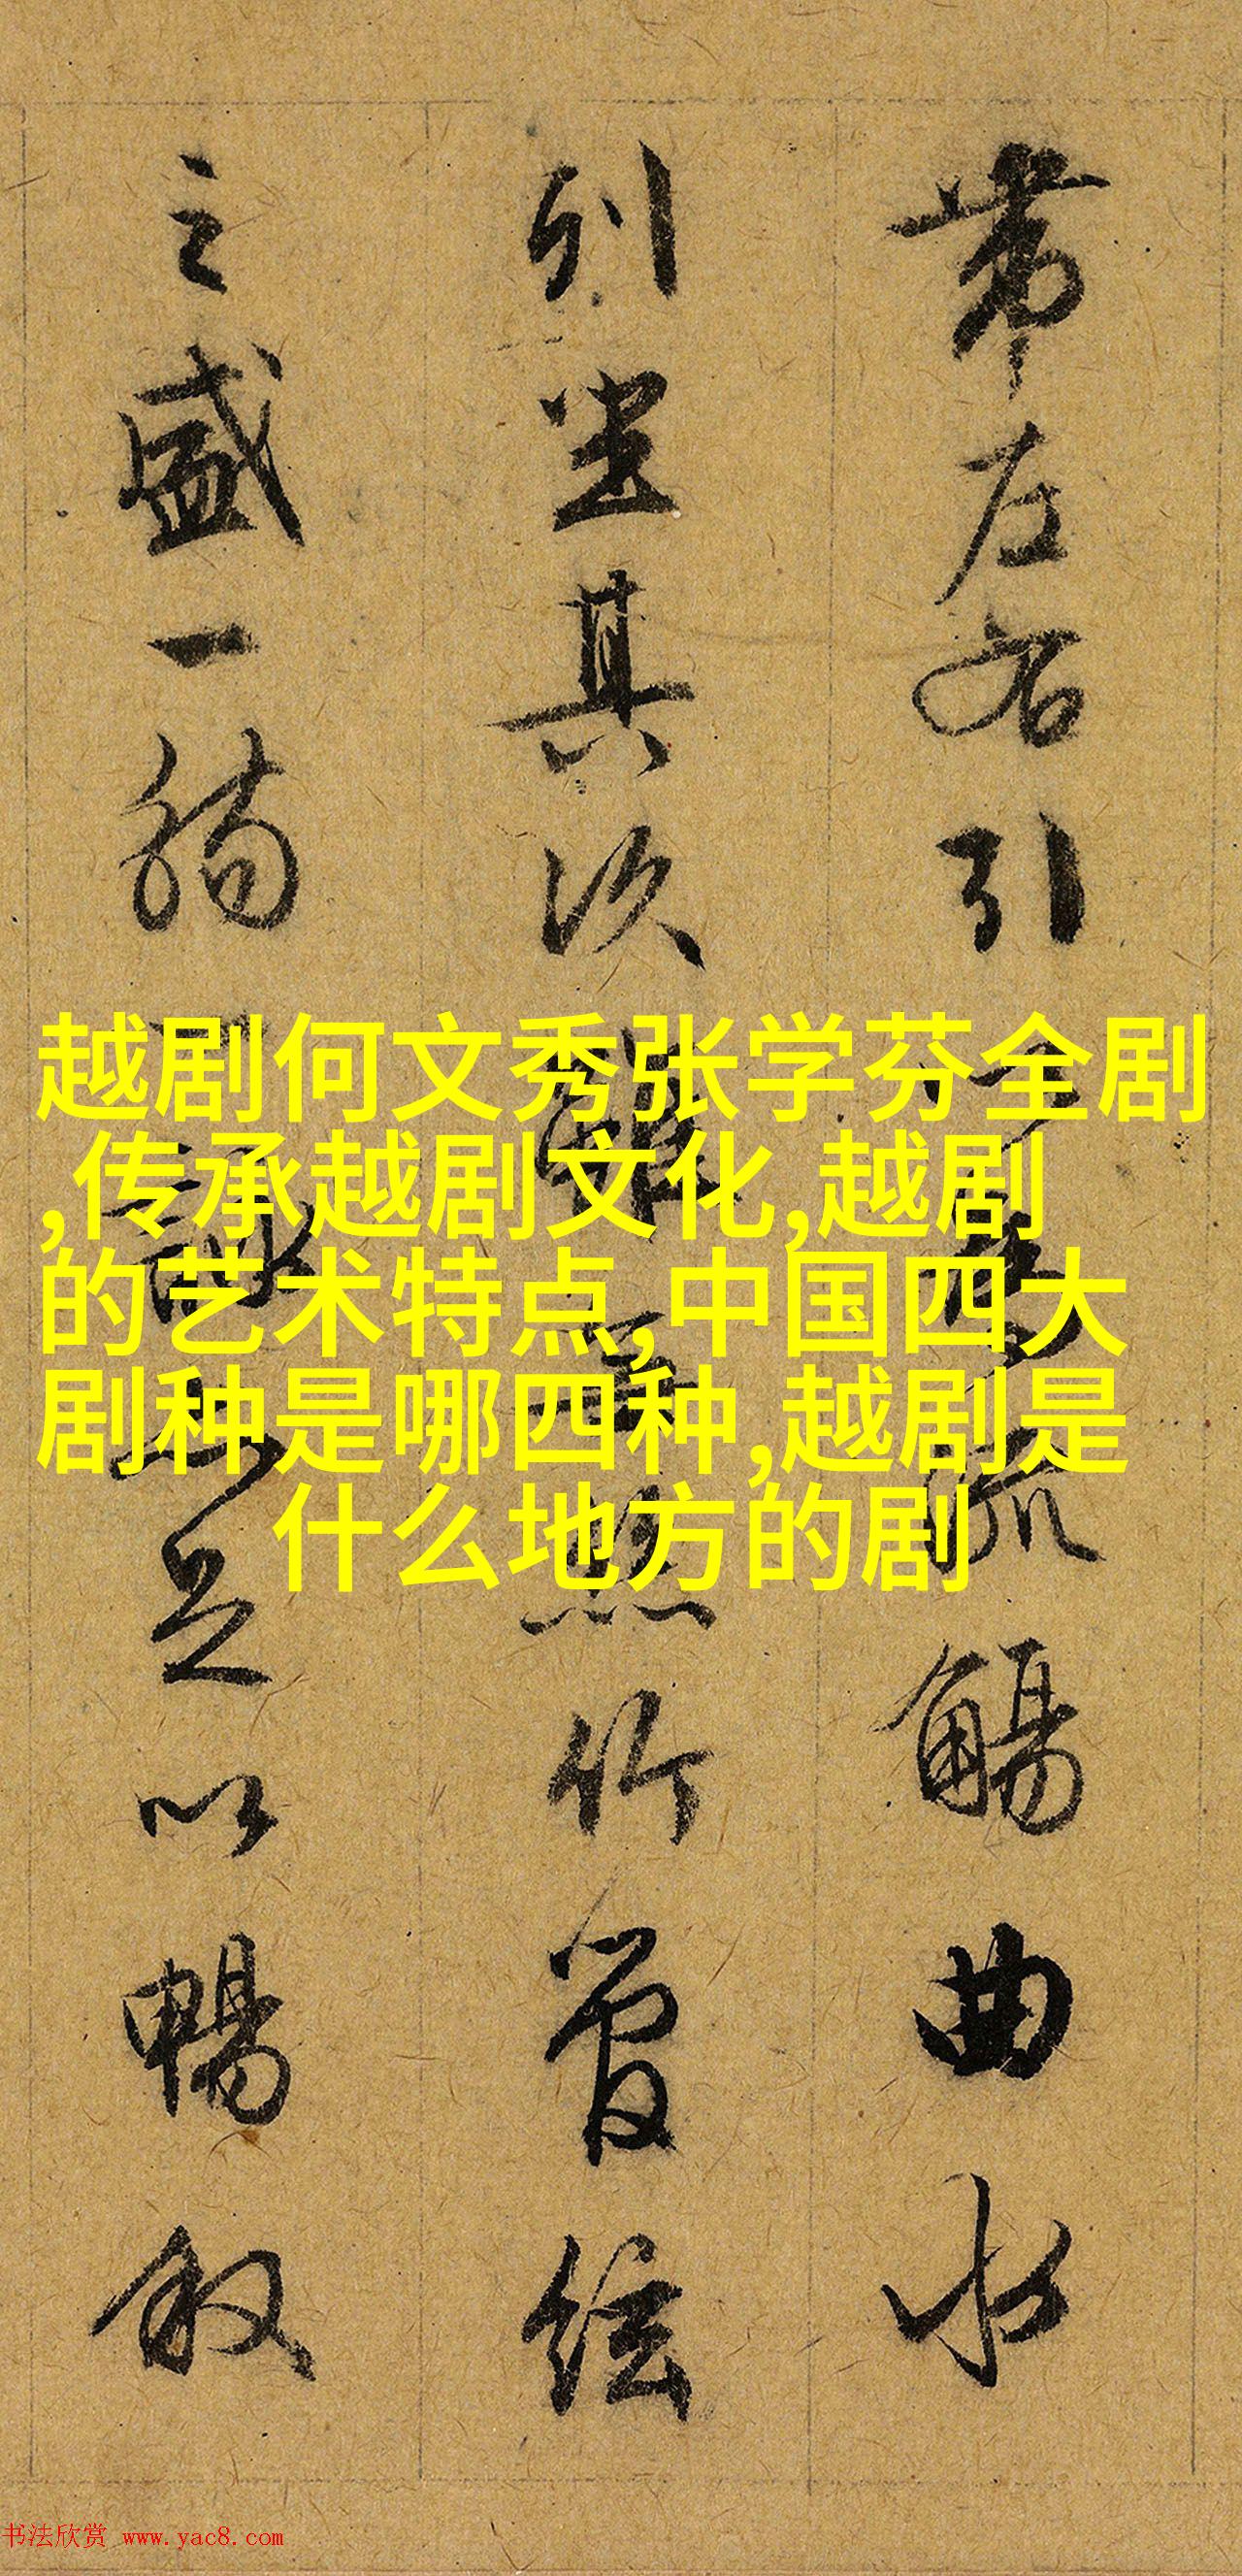 帶左右引以為流觴曲水
列坐其次雖無絲竹管絃
之盛一觴一詠亦足以暢敘
越剧何文秀张学芬全剧
,传承越剧文化,越剧
的艺术特点,中国四大
剧种是哪四种,越剧是
什么地方的剧
书法欣赏 www.yac8.com